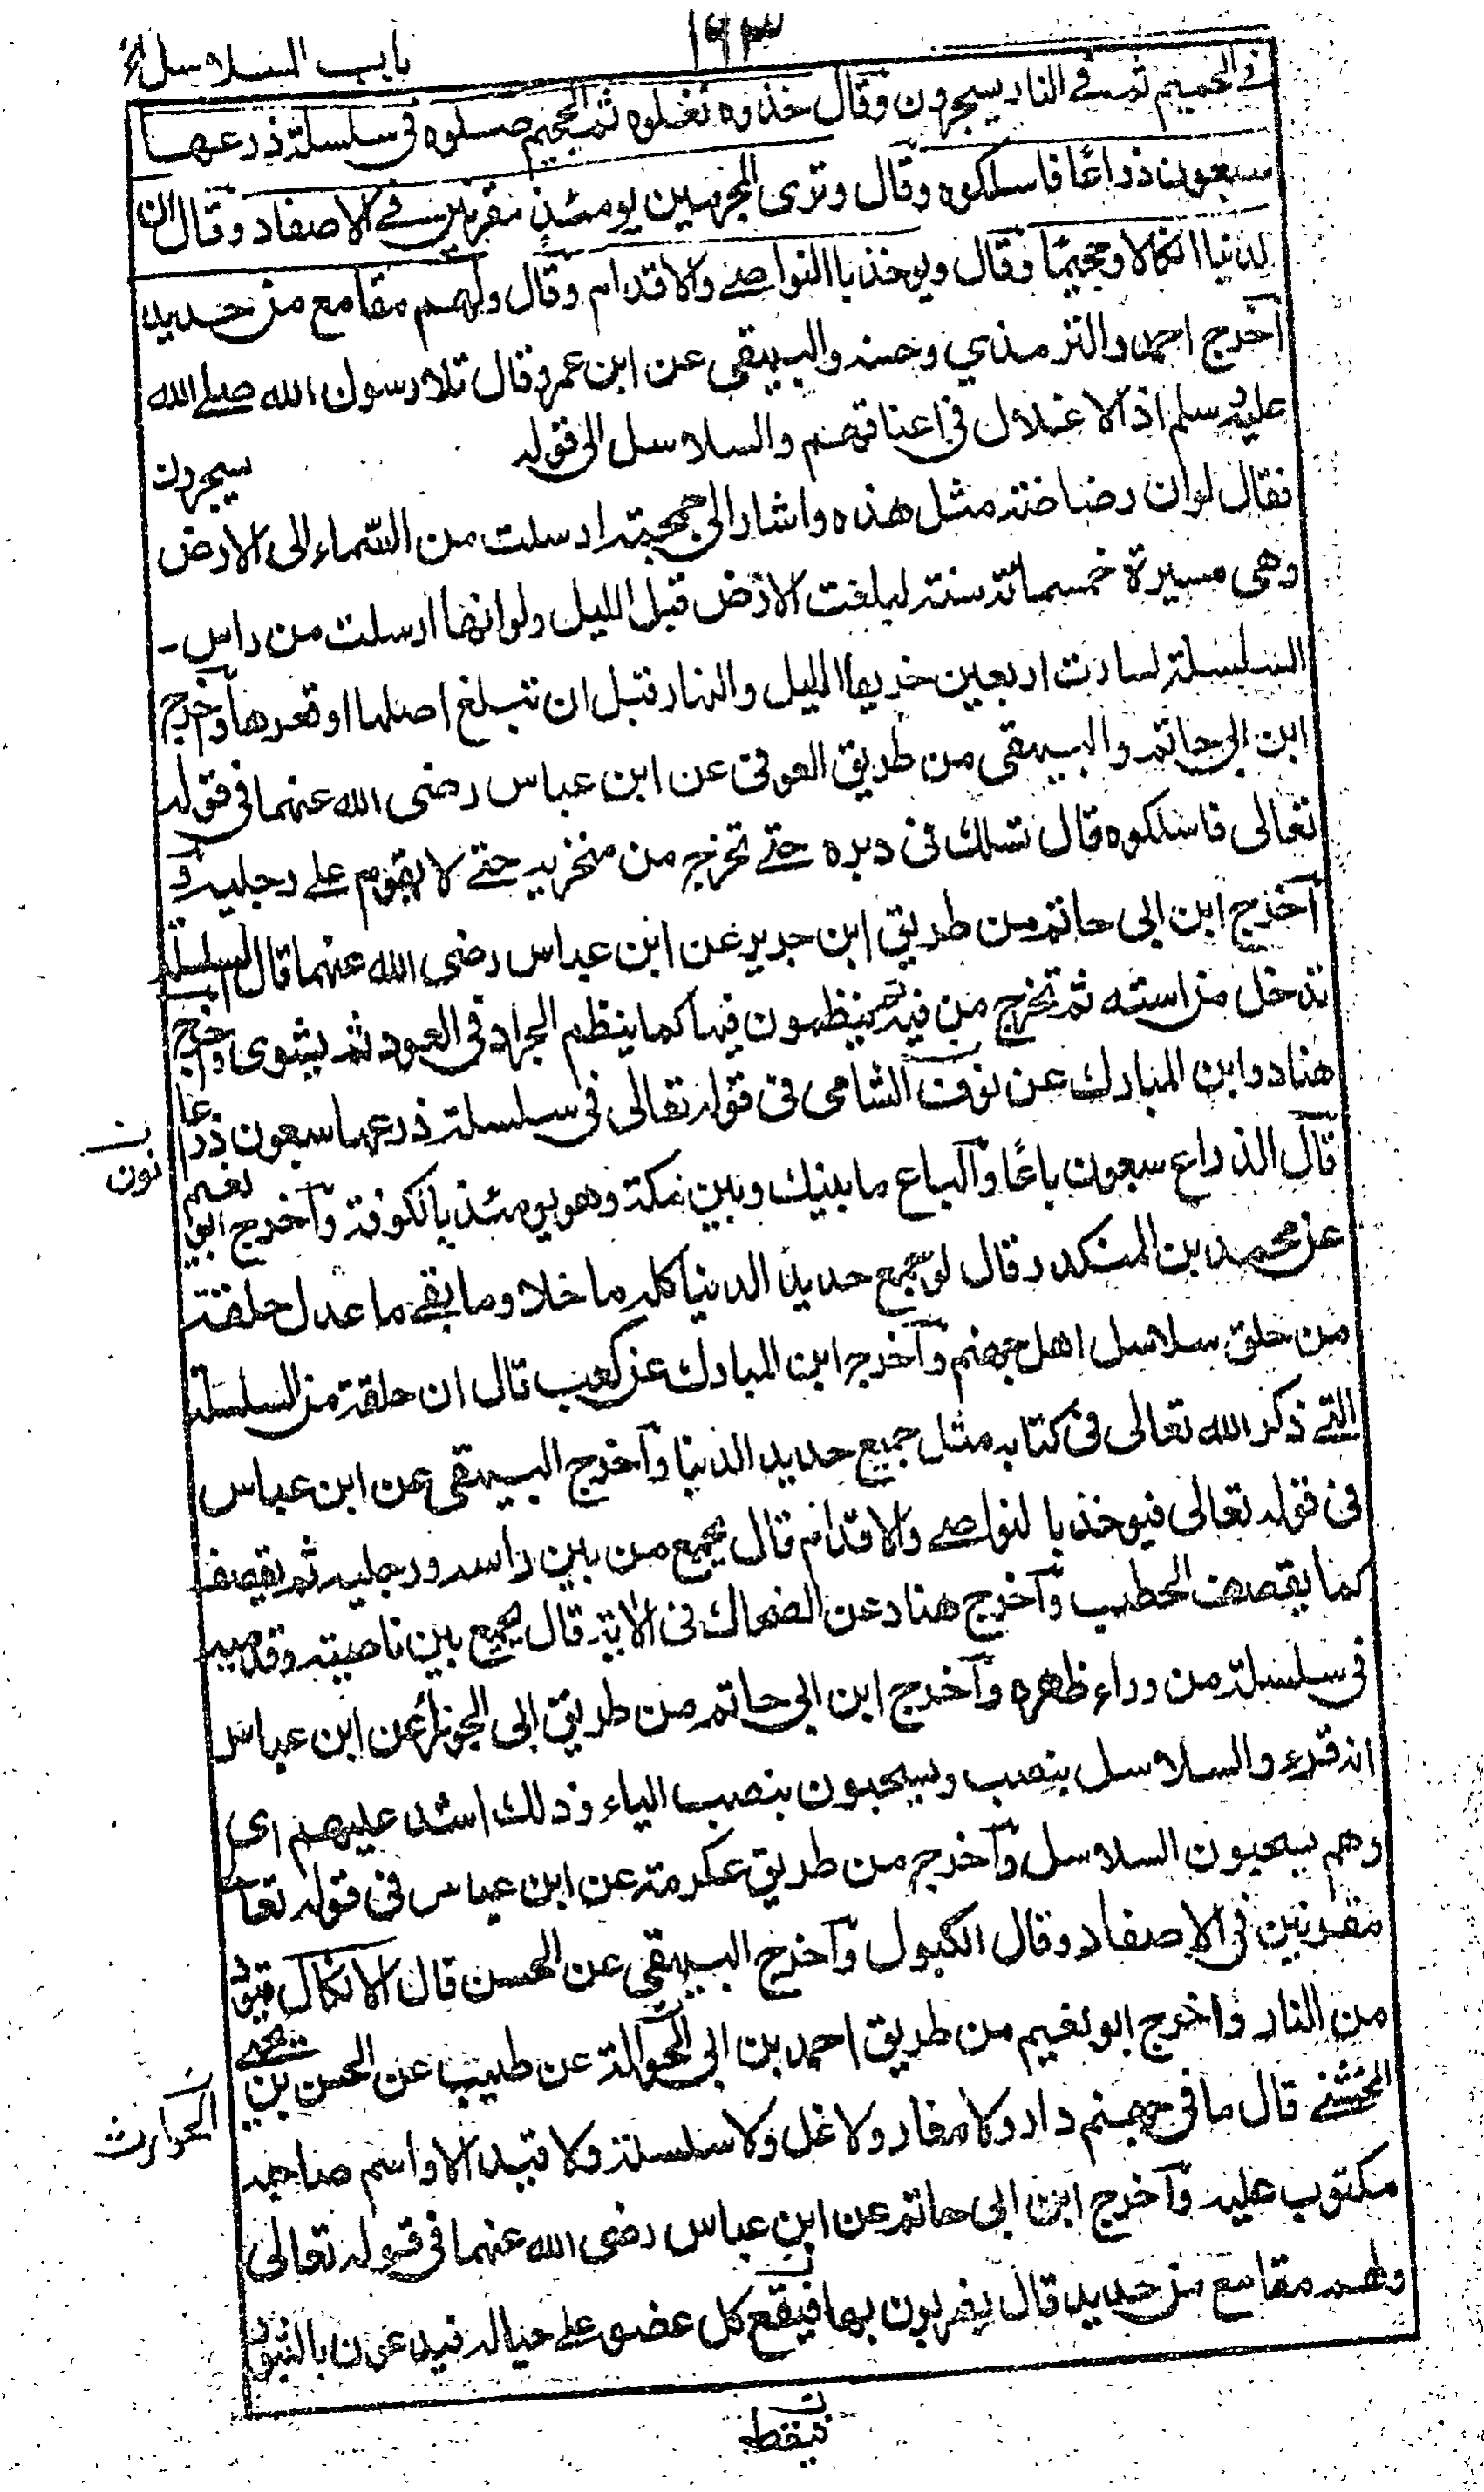 ١٩٣
باب السلاسل الخ
فى الحميم ثم فى النار يسجرون وقال خذوه فغلوه ثم الجحيم صلوه فى سلسلة ذرعها
سبعون ذراعًا فاسلكوه وقال وترى المجرمين يومئذ مقرنين فى الاصفاد وقال ان
لدينا انكالا وجحيمًا وقال ويوخذ بالنواصى والاقدام وقال ولهم مقامع من حديد
آخرج احمد والترمذي وحسنه والبيهقى عن ابن عمرو قال تلا رسول الله صلى الله
عليه وسلم اذ الاغلال فى اعناقهم والسلاسل الى قوله يسجرون
فقال لو ان رضاضة مثل هذه واشار الى جمجمة ارسلت من السماء الى الارض
وهى مسيرة خمسمائة سنة لبلغت الارض قبل الليل ولو انها ارسلت من راس
السلسلة لسارت اربعين خريفا الليل والنهار قبل ان تبلغ اصلها او قعرها وآخرج
ابن ابى حاتم والبيهقى من طريق العوفى عن ابن عباس رضى الله عنهما فى قوله
تعالى فاسلكوه قال تسلك فى دبره حتى تخرج من منخريه حتى لا يقوم على رجليه و
آخرج ابن ابى حاتم من طريق ابن جرير عن ابن عباس رضى الله عنهما قال السلسلة
تدخل من استه ثم تخرج من فيه ثم ينظمون فيها كما ينظم الجراد فى العود ثم يشوى وآخرج
هناد وابن المبارك عن نوف الشامى فى قوله تعالى فى سلسلة ذرعها سبعون ذراعا
نون
قال الذراع سبعون باعًا والباع ما بينك وبين مكة وهو يومئذ بالكوفة وآخرج ابو نعيم
عن محمد بن المنكدر قال لو جمع حديد الدنيا كله ما خلا وما بقى ما عدل حلقة
من حلق سلاسل اهل جهنم وآخرج ابن المبارك عن كعب قال ان حلقة من السلسلة
التى ذكر الله تعالى فى كتابه مثل جميع حديد الدنيا وآخرج البيهقى عن ابن عباس
فى قوله تعالى فيوخذ بالنواصى والاقدام قال يجمع من بين راسه ورجليه ثم يقصف
كما يقصف الحطب وآخرج هناد عن الضحاك فى الاية قال يجمع بين ناصيته وقدميه
فى سلسلة من وراء ظهره وآخرج ابن ابى حاتم من طريق ابى الجوزاء عن ابن عباس
انه قرء والسلاسل بنصب ويسحبون بنصب الياء وذلك اشد عليهم اى
وهم يسحبون السلاسل وآخرج من طريق عكرمة عن ابن عباس فى قوله تعالى
مقرنين فى الاصفاد وقال الكبول وآخرج البيهقى عن الحسن قال الانكال قيود
من النار واخرج ابو نعيم من طريق احمد بن ابى الحوالة عن طبيب عن الحسن بن يحيى
الحوارث
الخشنى قال ما فى جهنم دار ولا مغار ولا غل ولا سلسلة ولا قيد الا واسم صاحبه
مكتوب عليه وآخرج ابن ابى حاتم عن ابن عباس رضى الله عنهما فى قوله تعالى
ولهم مقامع من حديد قال يضربون بها فيقع كل عضو على حياله فيدعون بالثبور
فيقط